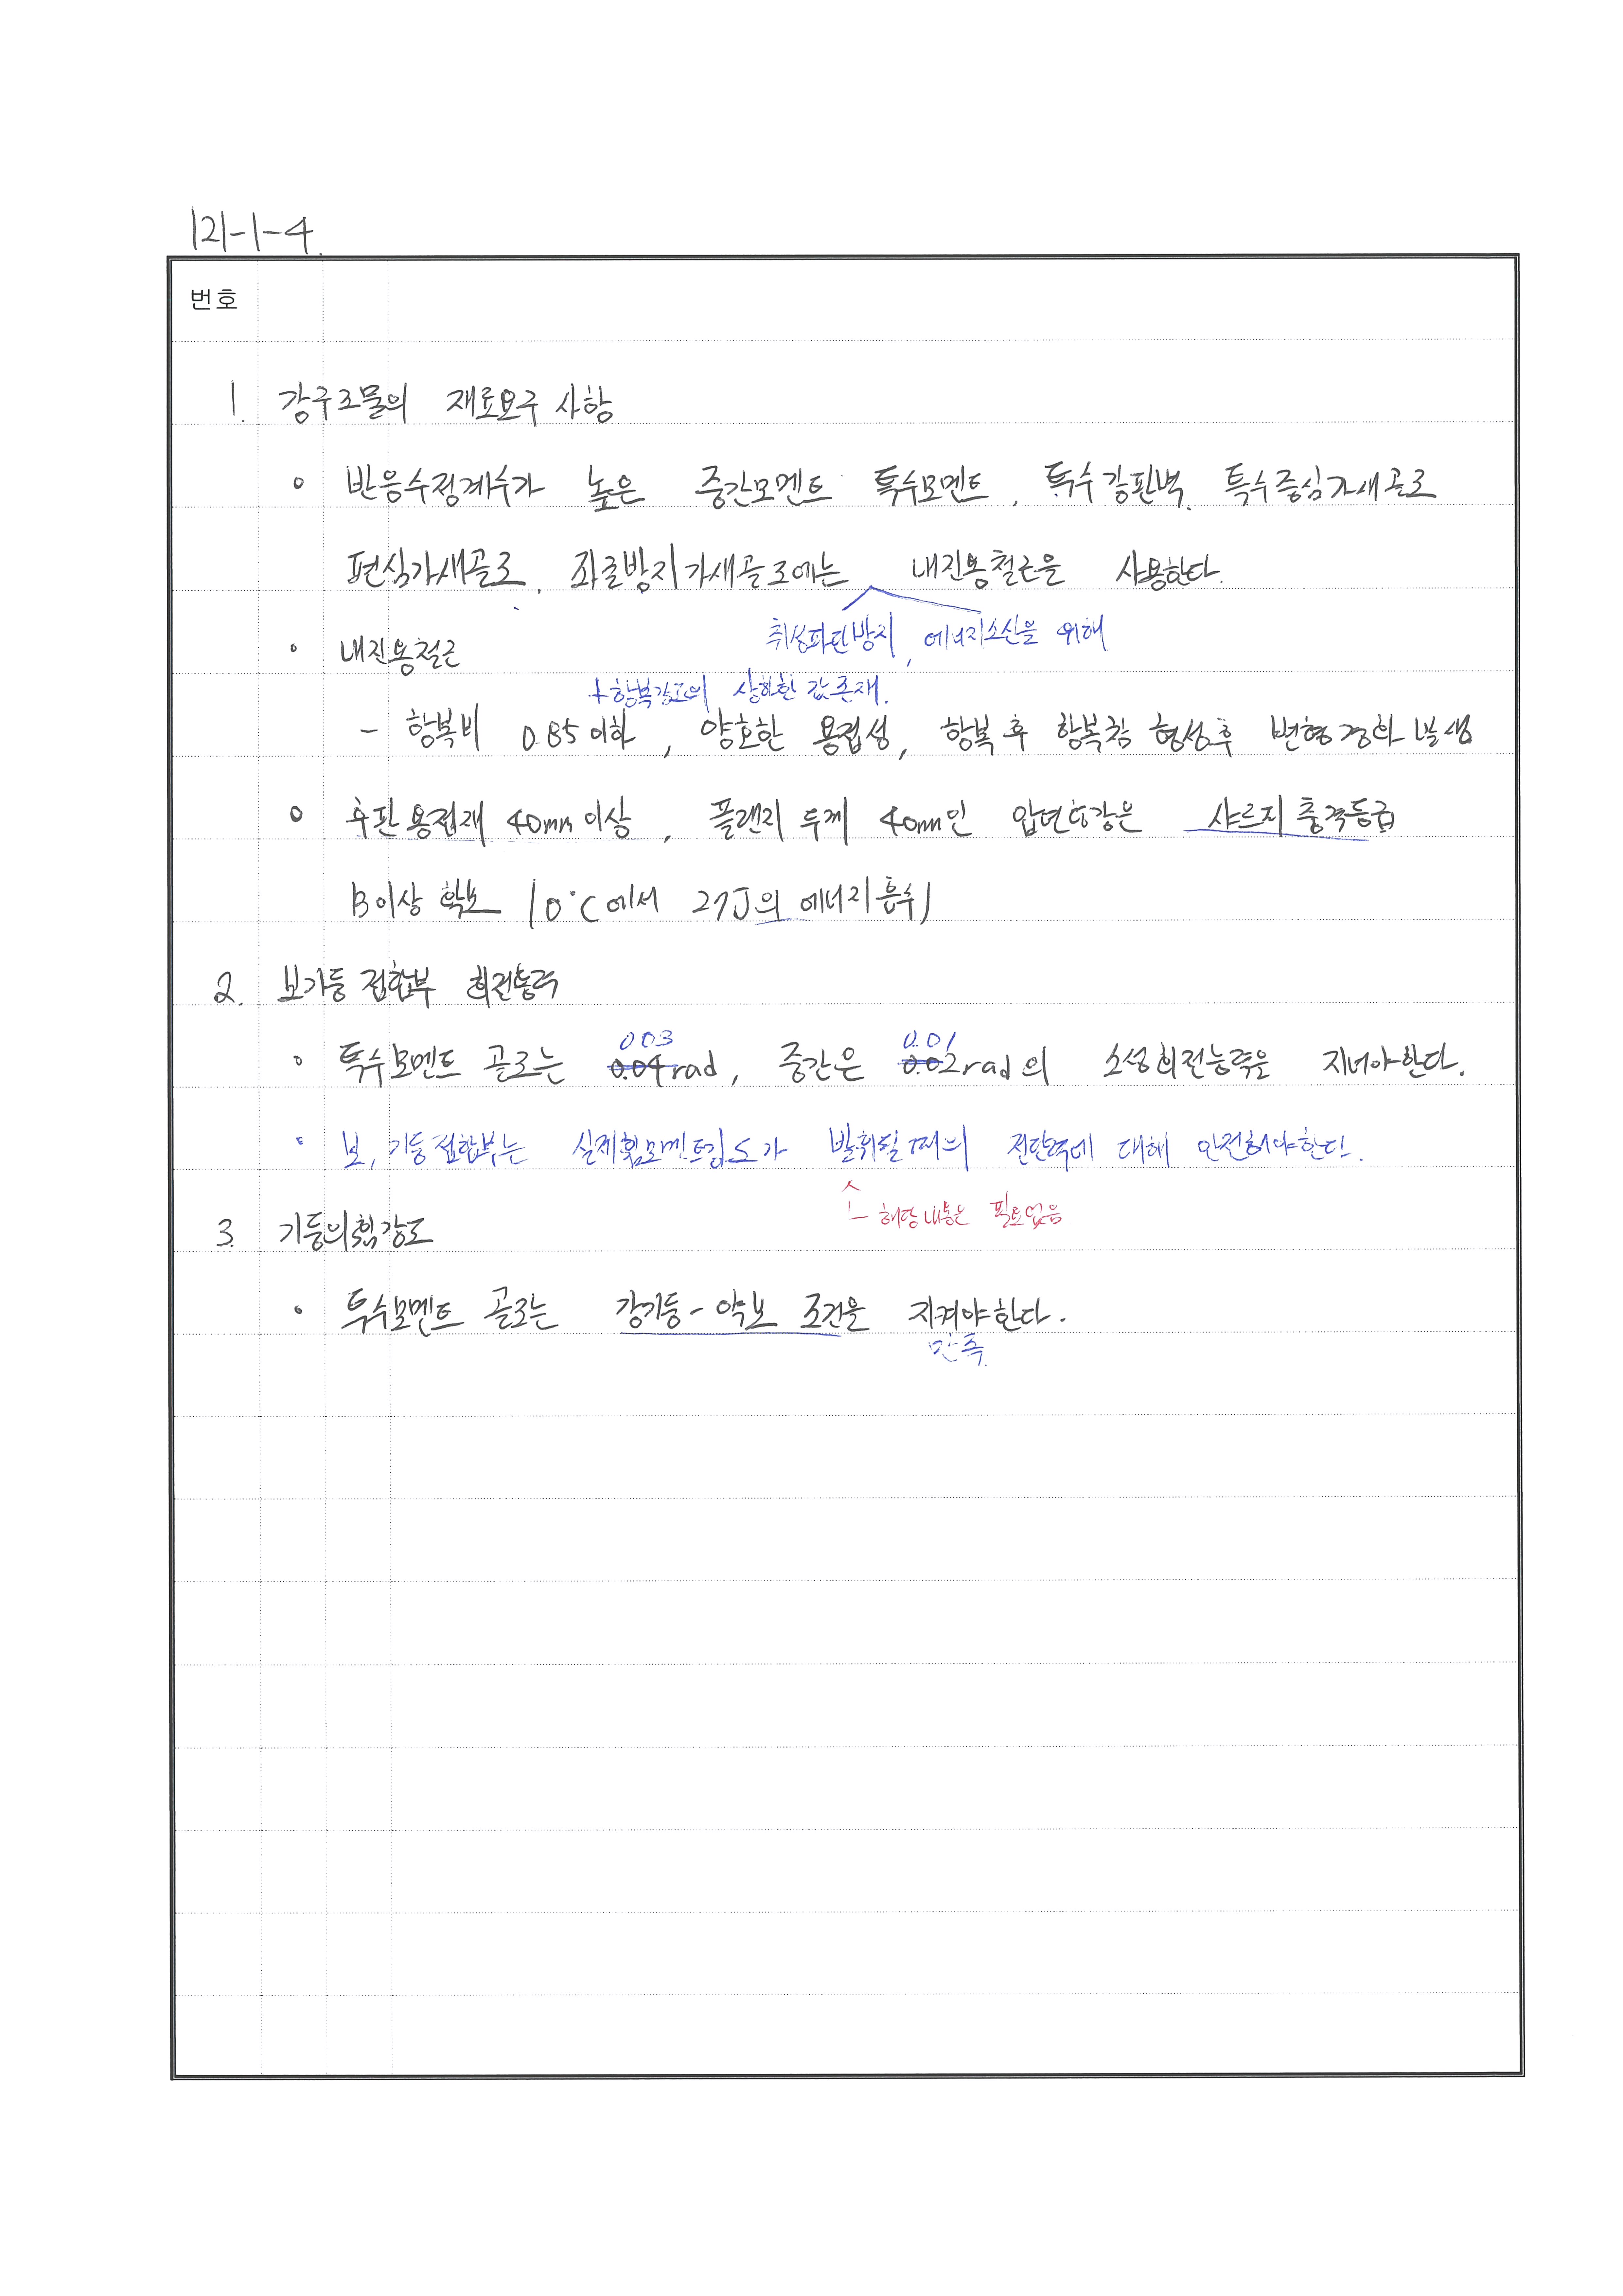 121-1-4.
번호
1. 강구조물의 재료요구 사항
∘ 반응수정계수가 높은 중간모멘트 특수모멘트, 특수강판벽, 특수중심가새골조
편심가새골조, 좌굴방지가새골조에는 내진용철근을 사용한다.
취성파단방지, 에너지소산을 위해
∘ 내진용철근
+ 항복강도의 상하한 값 존재.
- 항복비 0.85 이하, 양호한 용접성, 항복 후 항복참 형성후 변형경화 발생
∘ 후판 용접재 40mm 이상, 플랜지 두께 40mm인 압연H강은 샤르피 충격등급
B 이상 확보 / 0°C에서 27J의 에너지흡수 /
2. 보기둥 접합부 회전능력
0.03 0.01
∘ 특수모멘트 골조는 0.04rad, 중간은 0.02rad의 소성회전능력을 지녀야한다.
∘ 보, 기둥접합부는 실제휨모멘트강도가 발휘될 때의 전단력에 대해 안전해야한다.
ㄴ 해당내용은 필요없음
3. 기둥의 휨강도
∘ 특수모멘트 골조는 강기둥-약보 조건을 지켜야한다.
만족.